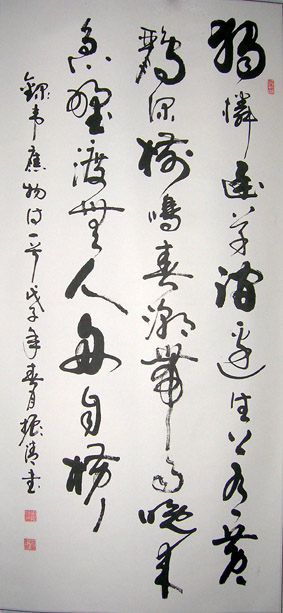 獨憐幽草澗邊生上有黃
鸝深樹鳴春潮帶雨晚来
急野渡無人舟自横
錄韋應物詩一首戊子年春月振書